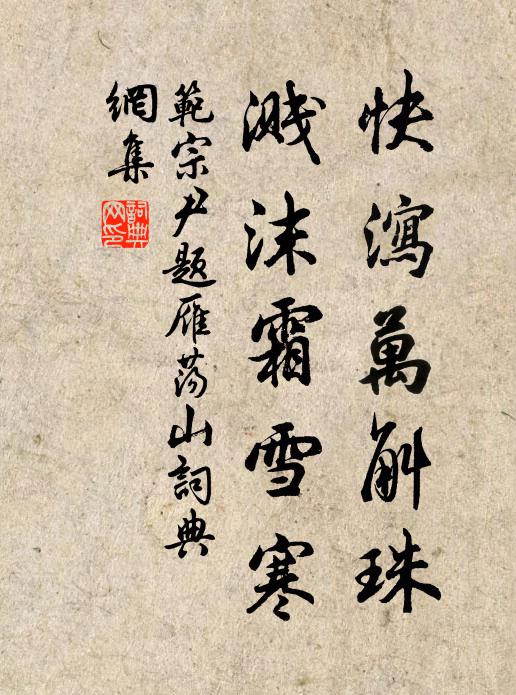 快瀉萬斛珠
濺沫霜雪寒
範宗尹題雁蕩山詞典
網集
詞典網印